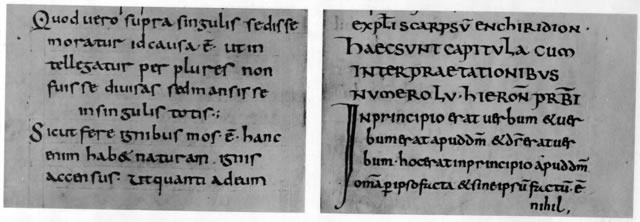 Quod vero supra singulis sedisse
moratur id causa ē. ut in
tellegatur per plures non
fuisse divisas sed mansisse
in singulis totis.;
Sicut fere ignibus mos ē. hanc
enim hab& naturam. ignis
accensus. ut quanti adeum
expl̄ iscarpsū enchiridion.
haec sunt capitula cum
interpraetationibus
numero lv. hieron̄ prbī
In principio erat uerbum & uer
bum erat apud dm̄ & ds̄ erat uer
bum. hoc erat in principio apud dm̄
om̄a per ipsō facta & sine ipsū factū. ē
nihil,